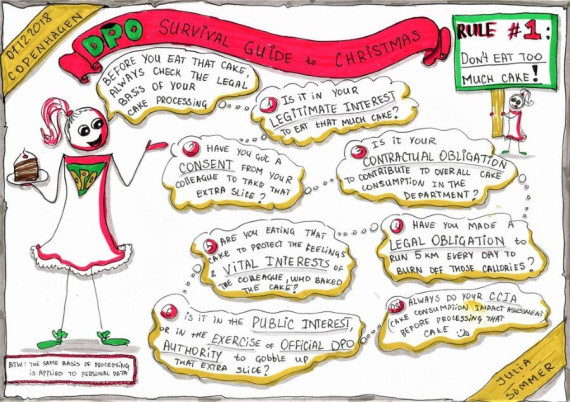 04.12.2018
COPENHAGEN
DPO SURVIVAL GUIDE to CHRISTMAS
RULE #1:
DON'T EAT TOO
MUCH CAKE!
BEFORE YOU EAT THAT CAKE,
ALWAYS CHECK THE LEGAL
BASIS OF YOUR
CAKE PROCESSING
IS IT IN YOUR
LEGITIMATE INTEREST
TO EAT THAT MUCH CAKE?
HAVE YOU GOT A
CONSENT FROM YOUR
COLLEAGUE TO TAKE THAT
EXTRA SLICE?
IS IT YOUR
CONTRACTUAL OBLIGATION
TO CONTRIBUTE TO OVERALL CAKE
CONSUMPTION IN THE
DEPARTMENT?
DPO
ARE YOU EATING THAT
CAKE TO PROTECT THE FEELINGS
& VITAL INTERESTS OF
THE COLLEAGUE, WHO BAKED
THE CAKE?
HAVE YOU MADE A
LEGAL OBLIGATION TO
RUN 5 KM EVERY DAY TO
BURN OFF THOSE CALORIES?
IS IT IN THE PUBLIC INTEREST,
OR IN THE EXERCISE OF OFFICIAL DPO
AUTHORITY TO GOBBLE UP
THAT EXTRA SLICE?
ALWAYS DO YOUR CCIA
CAKE CONSUMPTION IMPACT ASSESSMENT
BEFORE PROCESSING THAT
CAKE
BTW: THE SAME BASIS OF PROCESSING
IS APPLIED TO PERSONAL DATA
JULIA
SOMMER